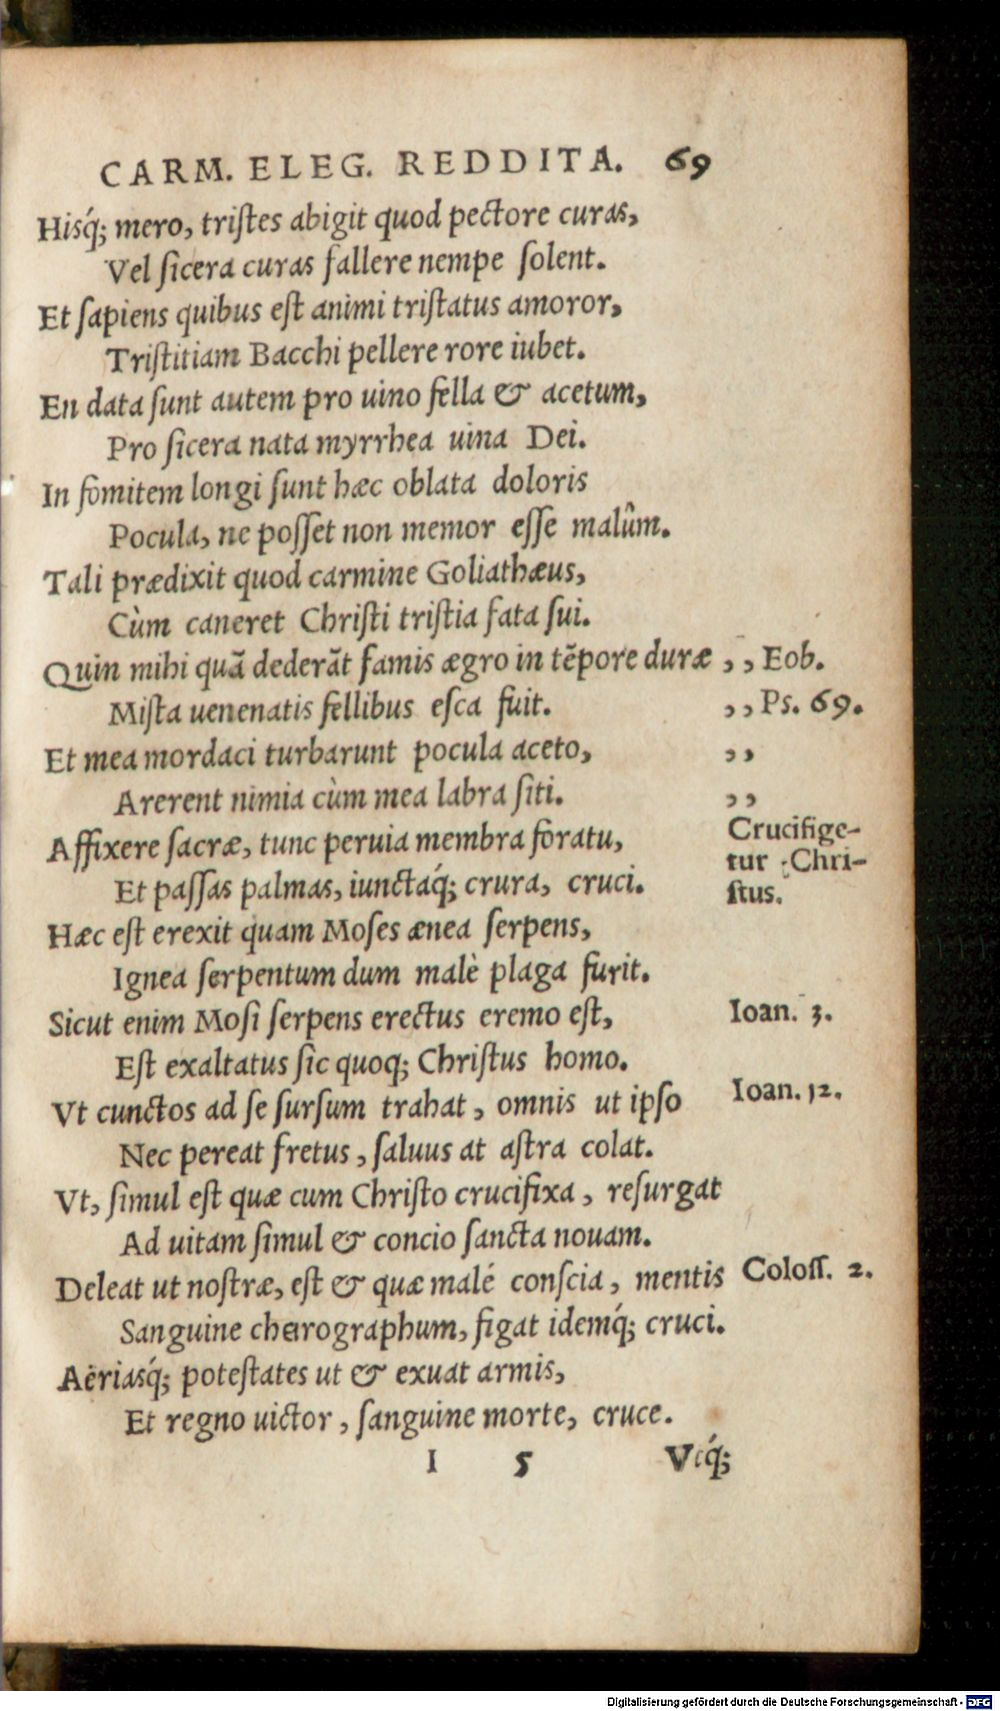 CARM. ELEG. REDDITA. 69
Hisq́; mero, tristes abigit quod pectore curas,
Vel sicera curas fallere nempe solent.
Et sapiens quibus est animi tristatus amoror,
Tristitiam Bacchi pellere rore iubet.
En data sunt autem pro uino fella & acetum,
Pro sicera nata myrrhea uina Dei.
In fomitem longi sunt hæc oblata doloris
Pocula, ne posset non memor esse malûm.
Tali prædixit quod carmine Goliathæus,
Cùm caneret Christi tristia fata sui.
Quin mihi quā dederāt famis ægro in tẽpore duræ ,, Eob.
Mista uenenatis fellibus esca fuit. ,, Ps. 69.
Et mea mordaci turbarunt pocula aceto, ,,
Arerent nimia cùm mea labra siti. ,,
Affixere sacræ, tunc peruia membra foratu,
Et passas palmas, iunctaq́; crura, cruci.
Crucifige-
tur Chri-
stus.
Hæc est erexit quam Moses ænea serpens,
Ignea serpentum dum malè plaga furit.
Sicut enim Mosi serpens erectus eremo est, Ioan. 3.
Est exaltatus sic quoq; Christus homo.
Vt cunctos ad se sursum trahat, omnis ut ipso Ioan. 12.
Nec pereat fretus, saluus at astra colat.
Vt, simul est quæ cum Christo crucifixa, resurgat
Ad uitam simul & concio sancta nouam.
Deleat ut nostræ, est & quæ malé conscia, mentis Coloss. 2.
Sanguine cheirographum, figat idemq́; cruci.
Aëriasq́; potestates ut & exuat armis,
Et regno uictor, sanguine morte, cruce.
I 5 Vtq́;
Digitalisierung gefördert durch die Deutsche Forschungsgemeinschaft - DFG